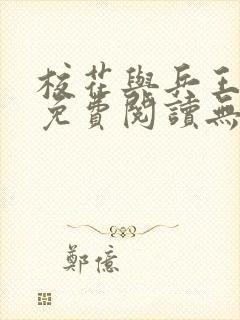 校花與兵王
免費閱讀無
鄭億